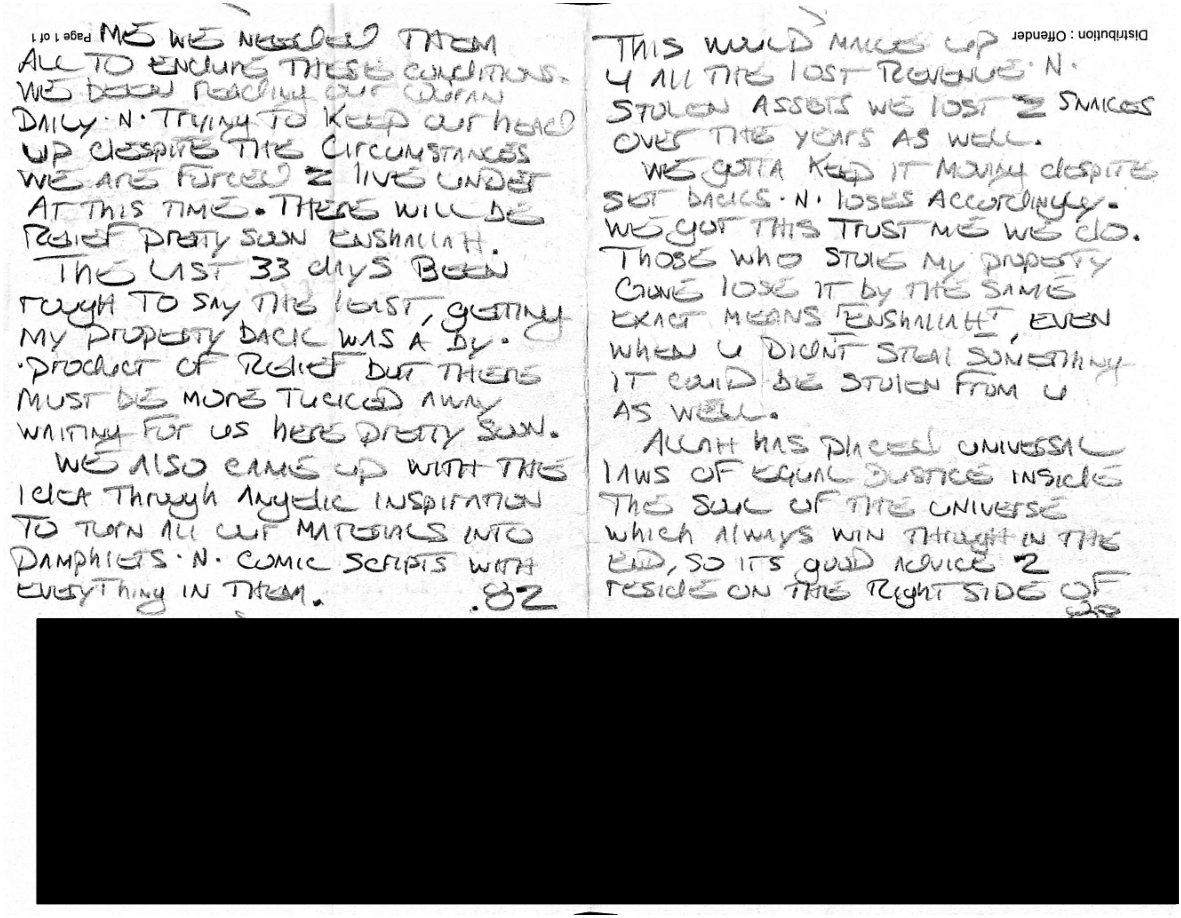 Page 1 of 1
ME WE NEEDED THEM
ALL TO ENDURE THESE CONDITIONS.
WE BEEN READING OUR QURAN
DAILY·N·TRYING TO KEEP OUR HEAD
UP DESPITE THE CIRCUMSTANCES
WE ARE FORCED 2 LIVE UNDER
AT THIS TIME. THERE WILL BE
RELIEF PRETTY SOON ENSHALLAH.
THE LAST 33 DAYS BEEN
ROUGH TO SAY THE LEAST, GETTING
MY PROPERTY BACK WAS A BY·
·PRODUCT OF RELIEF BUT THERE
MUST BE MORE TUCKED AWAY
WAITING FOR US HERE PRETTY SOON.
WE ALSO CAME UP WITH THE
IDEA THROUGH ANGELIC INSPIRATION
TO TURN ALL OUR MATERIALS INTO
PAMPHLETS·N·COMIC SCRIPTS WITH
EVERYTHING IN THEM.
.82
Distribution : Offender
THIS WOULD MAKES UP
4 ALL THE LOST REVENUE·N·
STOLEN ASSETS WE LOST 2 SNAKES
OVER THE YEARS AS WELL.
WE GOTTA KEEP IT MOVING DESPITE
SET BACKS·N·LOSES ACCORDINGLY.
WE GOT THIS TRUST ME WE DO.
THOSE WHO STOLE MY PROPERTY
GONE LOSE IT BY THE SAME
EXACT MEANS "ENSHALLAH", EVEN
WHEN U DIDN'T STEAL SOMETHING
IT COULD BE STOLEN FROM U
AS WELL.
ALLAH HAS PLACED UNIVERSAL
LAWS OF EQUAL JUSTICE INSIDE
THE SOUL OF THE UNIVERSE
WHICH ALWAYS WIN THROUGH IN THE
END, SO ITS GOOD ADVICE 2
RESIDE ON THE RIGHT SIDE OF